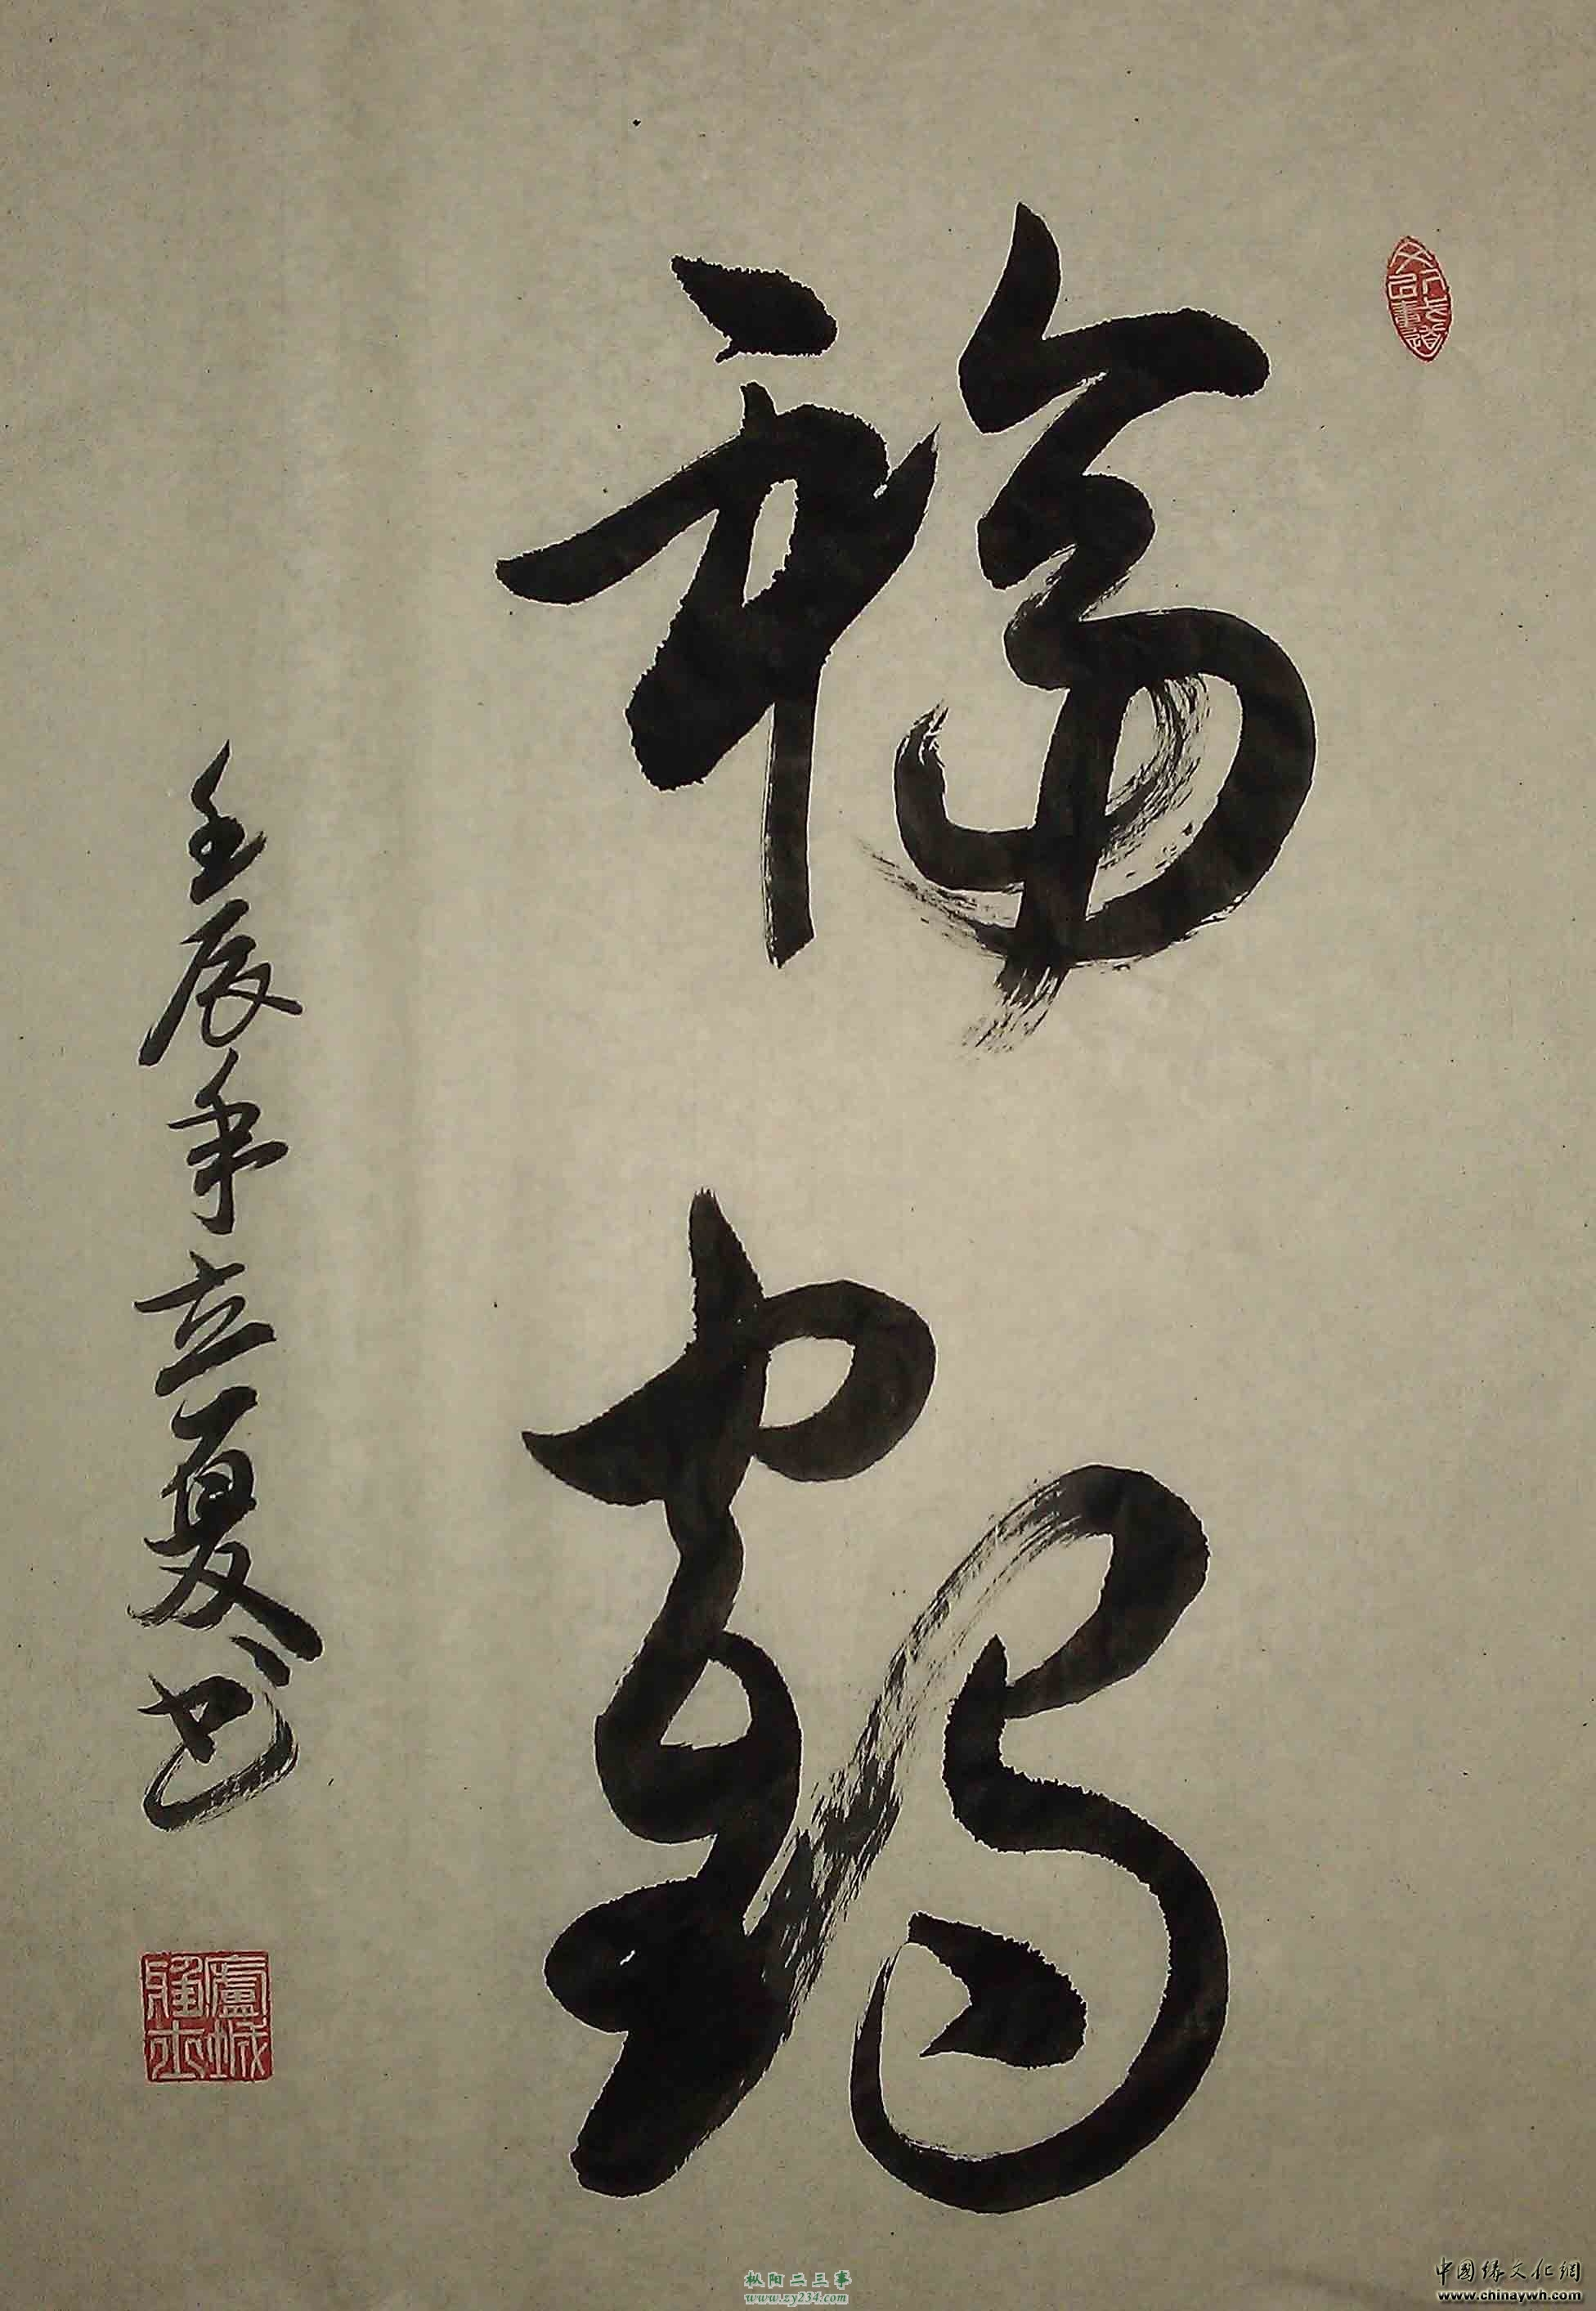 福鹤
壬辰年立夏書
枞阳二三事
www.zy234.com
中國缘文化網
www.chinaywh.com